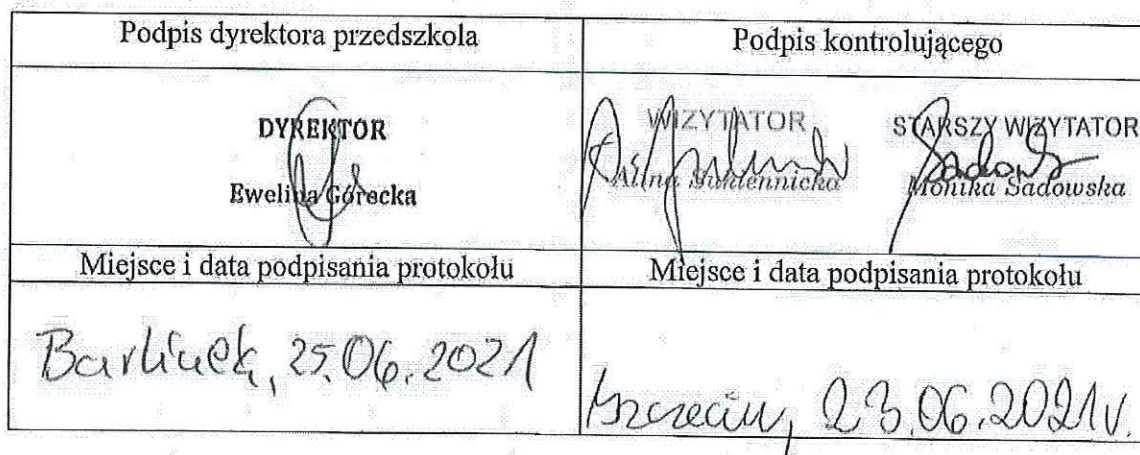 Podpis dyrektora przedszkola
Podpis kontrolującego
DYREKTOR
Ewelina Górecka
WIZYTATOR
Alina Sukiennicka
STARSZY WIZYTATOR
Monika Sadowska
Miejsce i data podpisania protokołu
Miejsce i data podpisania protokołu
Barlinek, 25.06.2021
Szczecin, 23.06.2021r.